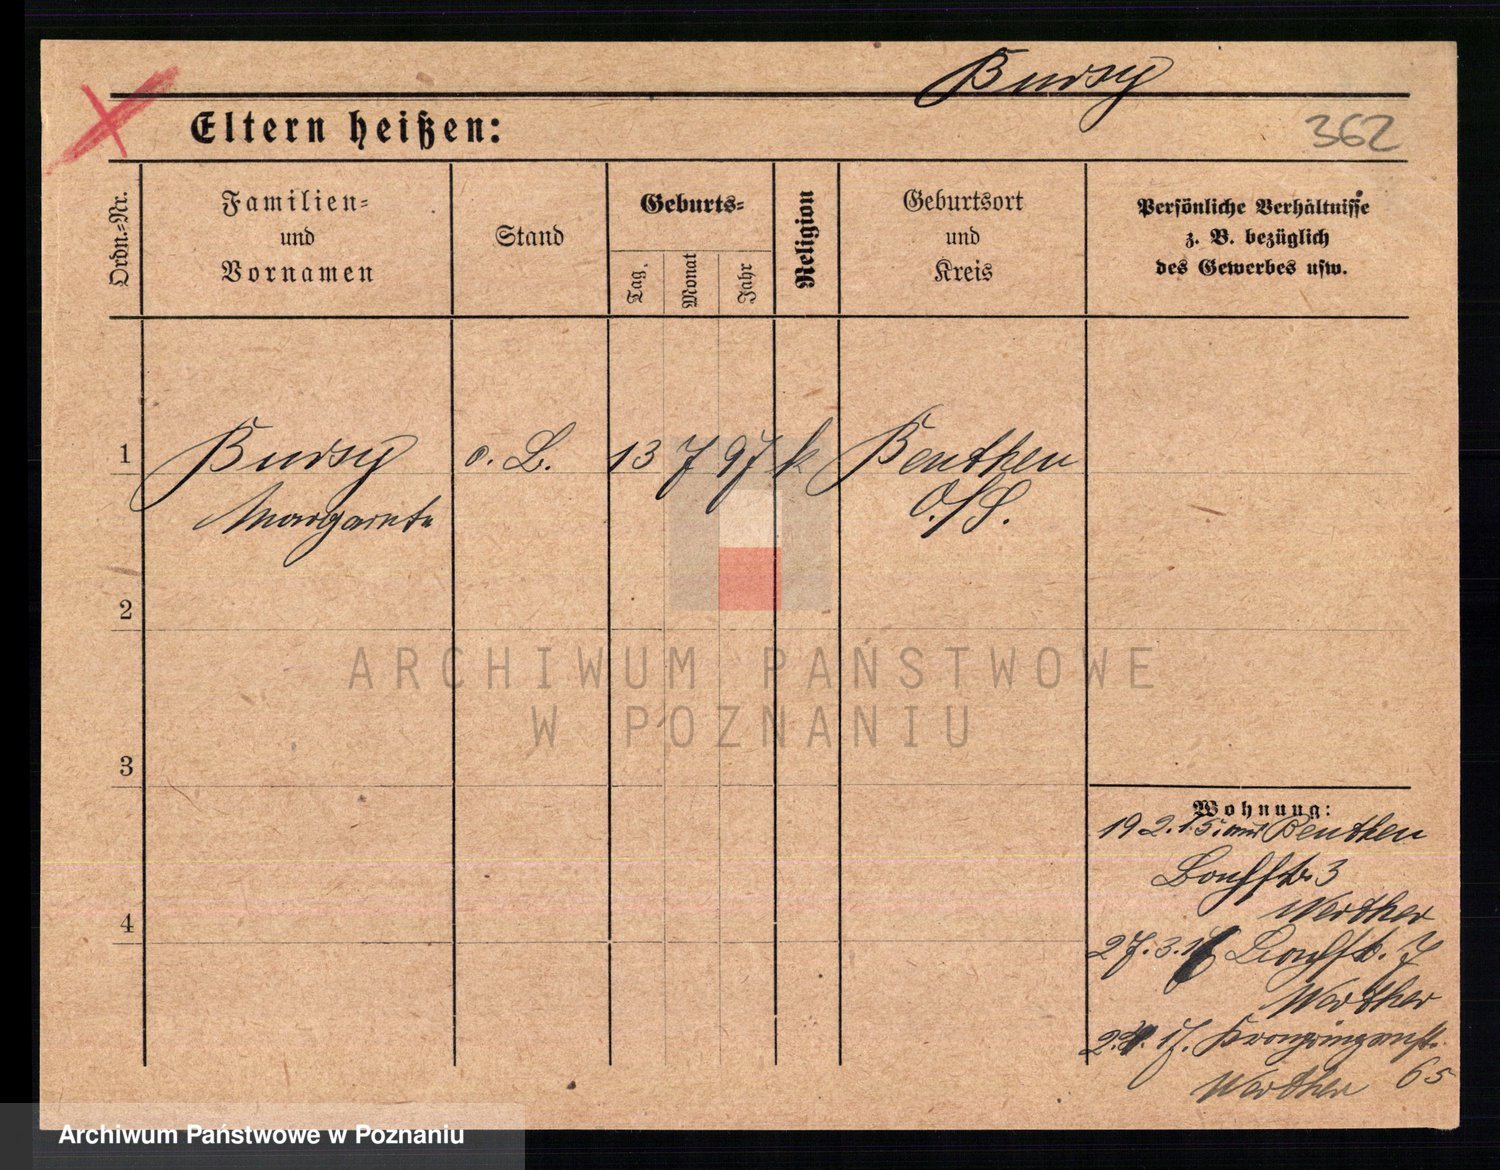 Bursy
Eltern heißen:
362
Ordn.-Nr.
Familien-
und
Vornamen
Stand
Geburts-
Tag.
Monat
Jahr
Religion
Geburtsort
und
Kreis
Persönliche Verhältnisse
z. B. bezüglich
des Gewerbes usw.
1 Bursy o. B. 13 7 97 k Beuthen
Margarete O./S.
2
ARCHIWUM PAŃSTWOWE
W POZNANIU
3
Wohnung:
19 2. 15. aus Beuthen
3
Werther
4
27. 3. 7
Werther
2. 17. Kronprinzenstr.
Werther 65
Archiwum Państwowe w Poznaniu